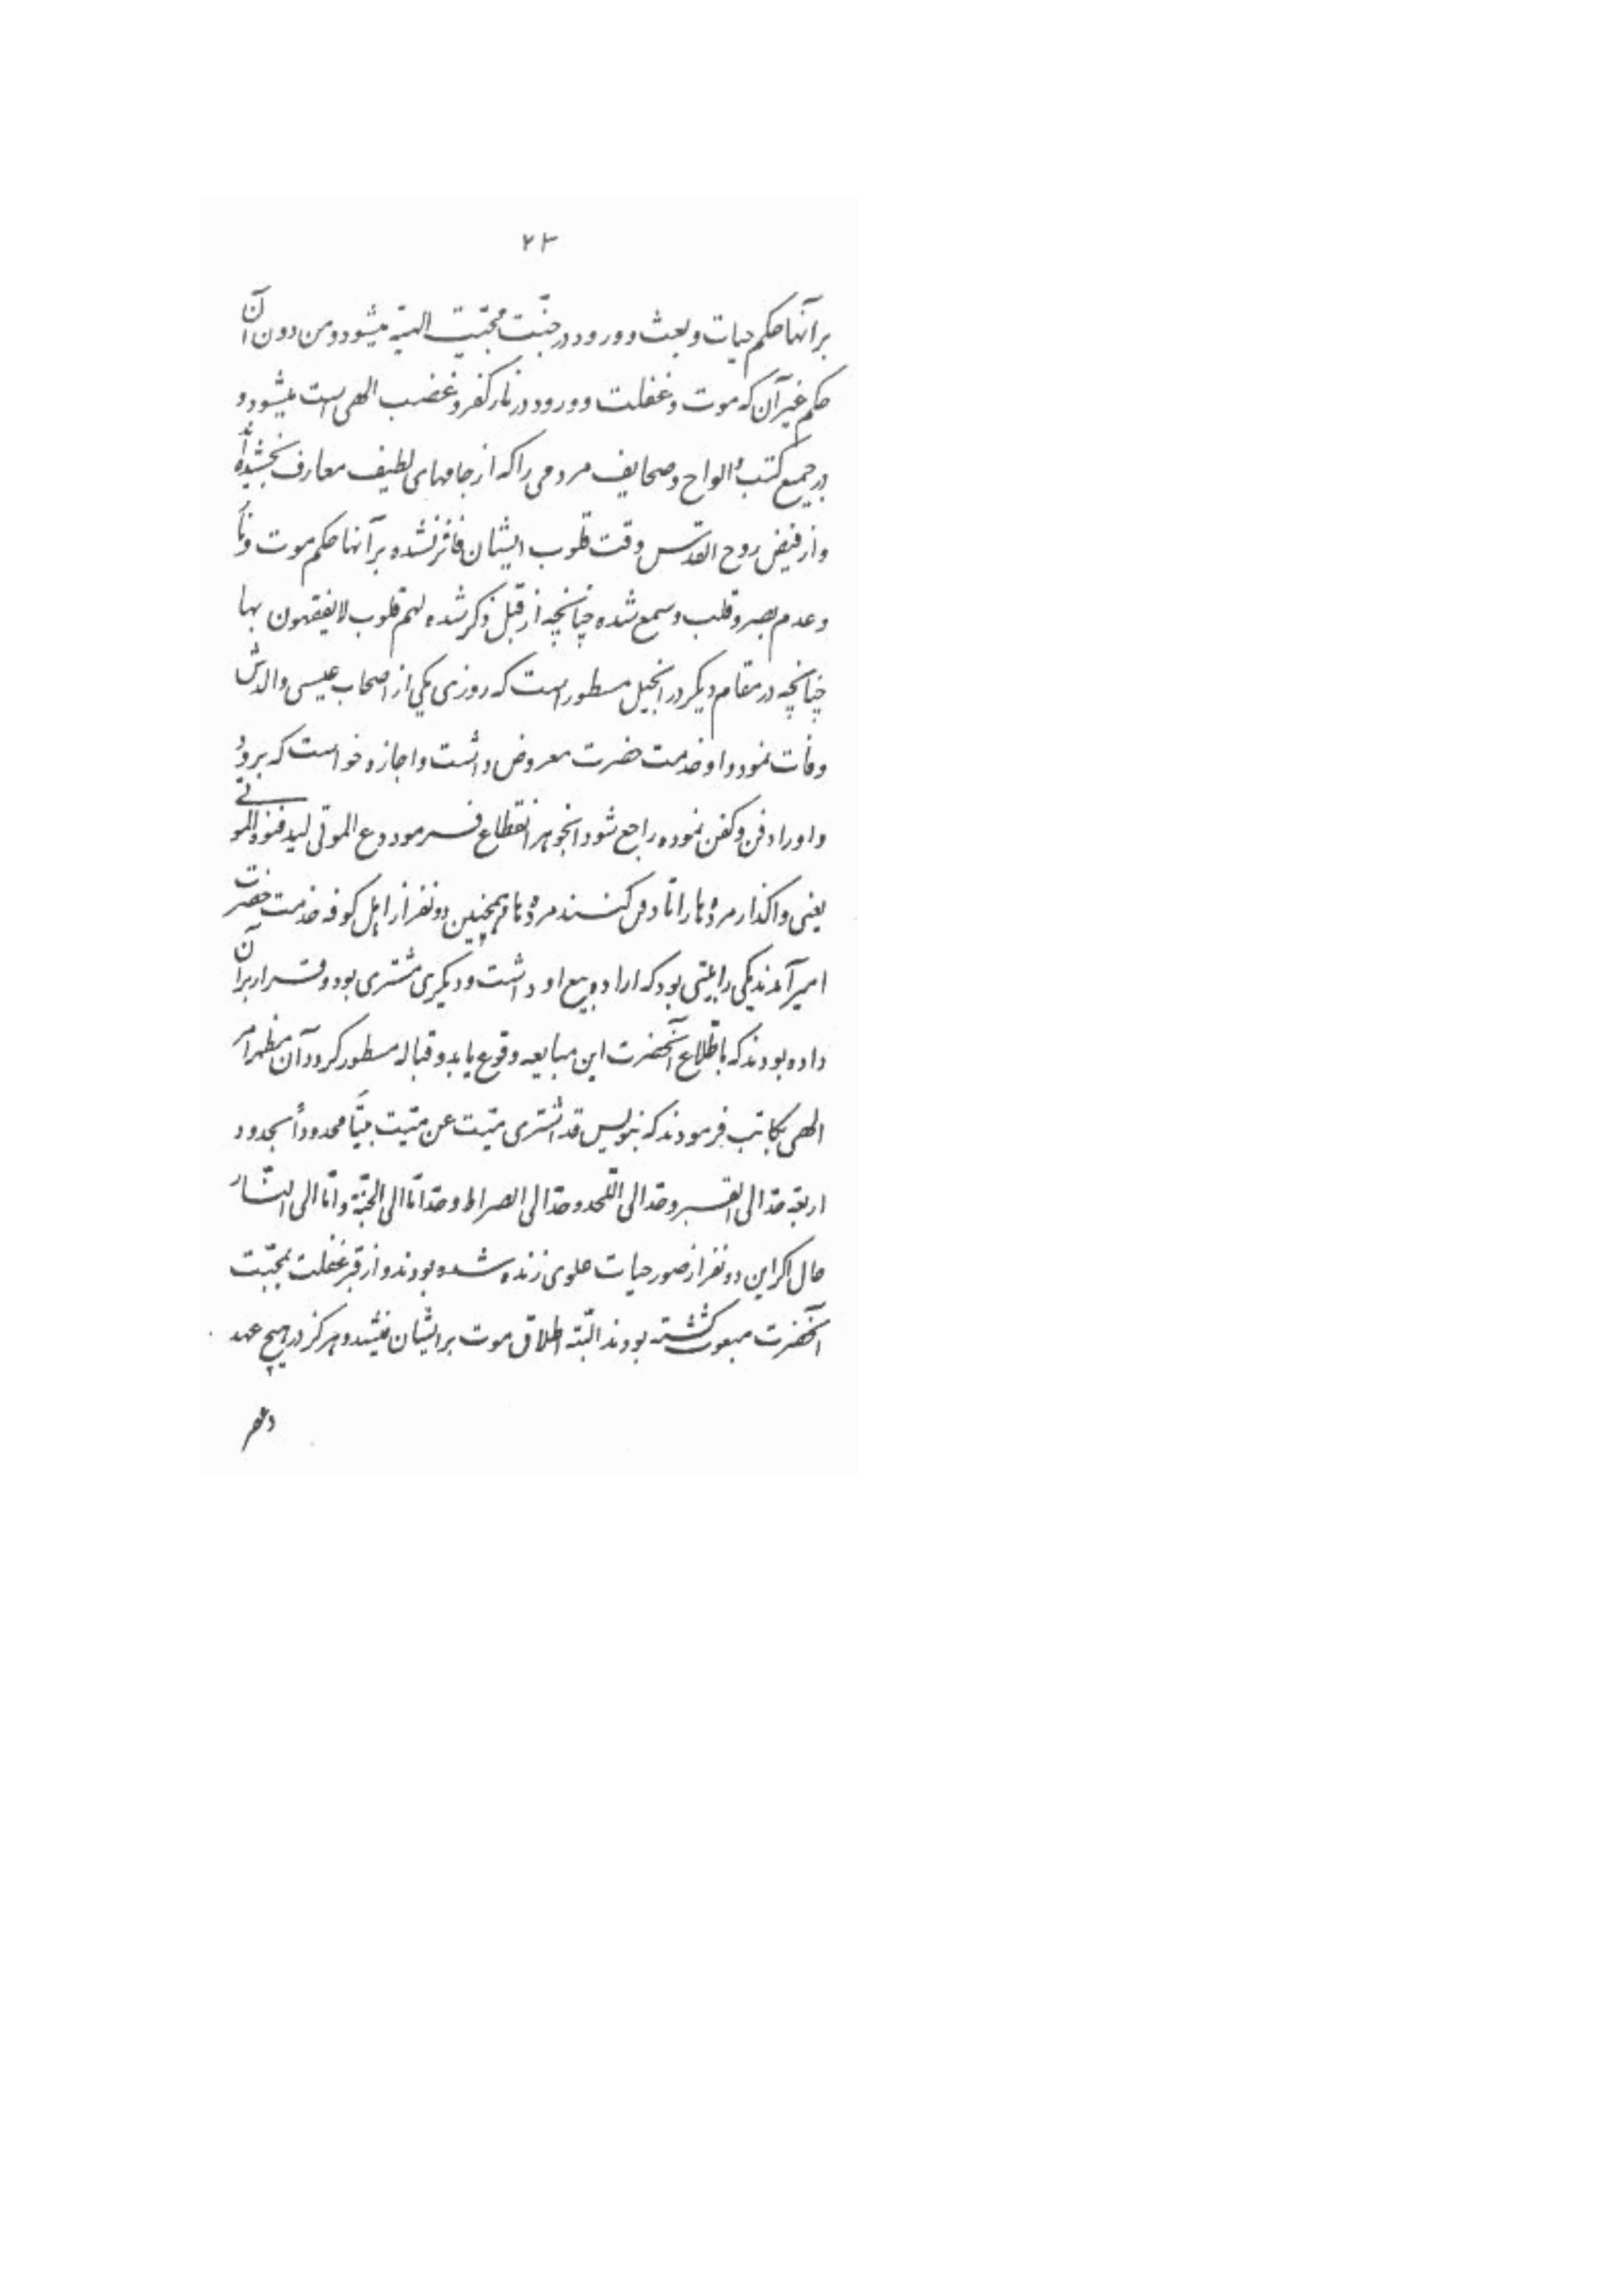 ۲۳
برآنها حکم حیات و بعث و ورود در جنّت محبّت الهیّه میشود و من دون آن
حکم غیر آن که موت و غفلت و ورود در نار کفر و غضب الهی است میشود و
در جمیع کتب و الواح و صحایف مردمی را که از جامهای لطیف معارف نچشیده‌اند
و از فیض روح القدس وقت قلوب ایشان فائز نشده برآنها حکم موت و نار
و عدم بصر و قلب و سمع شده چنانچه از قبل ذکر شده لهم قلوب لا یفقهون بها
چنانچه در مقام دیگر در انجیل مسطور است که روزی یکی از اصحاب عیسی والدش
وفات نمود و او خدمت حضرت معروض داشت و اجازه خواست که برود و
و او را دفن و کفن نموده راجع شود آنجوهر انقطاع فرمود دع الموتی لیدفنوه الموتی
یعنی واگذار مرده‌ها را تا دفن کنند مرده‌ها و همچنین دو نفر از اهل کوفه خدمت حضرت
امیر آمدند یکی را بیتی بود که اراده بیع او داشت و دیگری مشتری بود و قرار بر آن
داده بودند که باطّلاع آنحضرت این مبایعه وقوع یابد و قباله مسطور گردد آن مظهر امر
الهی بکاتب فرمودند که بنویس قد اشتری میّت عن میّت بیتاً محدوداً بحدود
اربعة حدّ الی القبر و حدّ الی اللّحد و حدّ الی الصراط و حدّ امّا الی الجنّة و امّا الی النّار
حال اگر این دو نفر از صور حیات علوی زنده شده بودند و از قبر غفلت بمحبّت
آنحضرت مبعوث گشته بودند البتّه اطلاق موت بر ایشان نمیشد و هرگز در هیچ عهد
و عصر